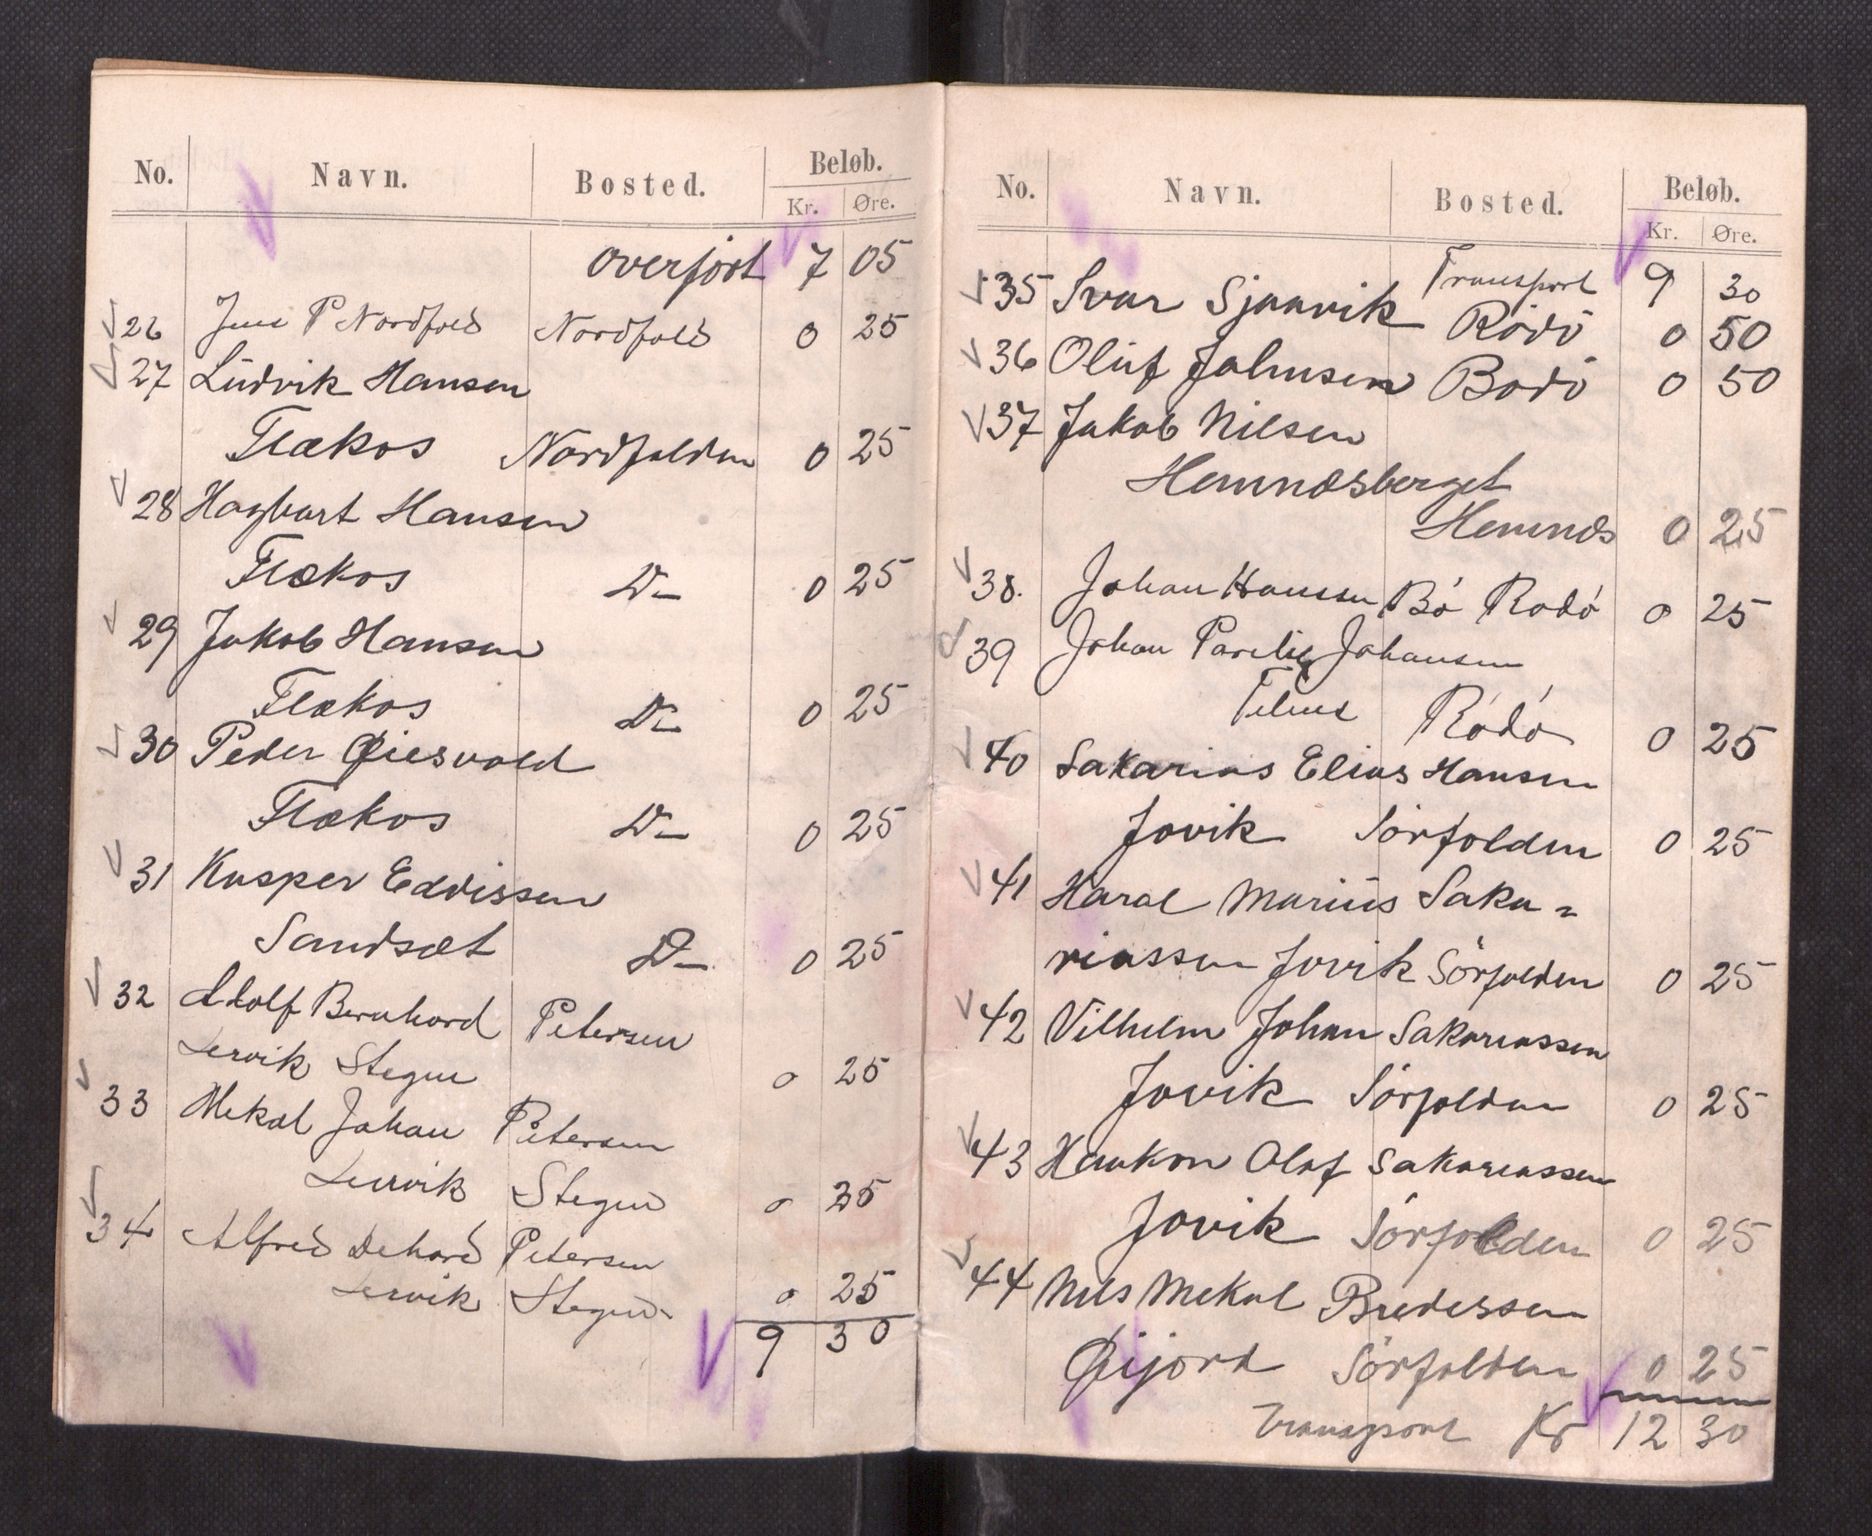 No. Navn. Bosted. Beløb.
Kr. Øre.
overført 7 05
26 Jens P Nordfold Nordfold 0 25
27 Ludvik Hansen
Flækos Nordfolden 0 25
28 Hagbart Hansen
Flækos D— 0 25
29 Jakob Hansen
Flækos D— 0 25
30 Peder Øiesvold
Flækos D— 0 25
31 Kasper Edvissen
Sandsæt D— 0 25
32 Adolf Bernhard Petersen
Lervik Stegen 0 25
33 Mekal Johan Petersen
Leervik Stegen 0 25
34 Alfred Dehard Petersen
Lervik Stegen 0 25
9 30
No. Navn. Bosted. Beløb.
Kr. Øre.
Transport 9 30
35 Ivar Sjaavik Rödö 0 50
36 Oluf Johnsen Bodö 0 50
37 Jakob Nilsen
Hemnæsberget
Hemnæs 0 25
38. Johan Hanssen Bö Rodö 0 25
39 Johan Parelius Johansen
Telnes Rödö 0 25
40 Sakarias Elias Hansen
Jovik Sörfolden 0 25
41 Haral Marius Saka=
riassen Jovik Sörfolden 0 25
42 Vilhelm Johan Sakariassen
Jovik Sörfolden 0 25
43 Haakon Olaf Sakariassen
Jovik Sörfolden 0 25
44 Nils Mekal Bredessen
Øijord Sörfolden 0 25
Transport Kr 12 30